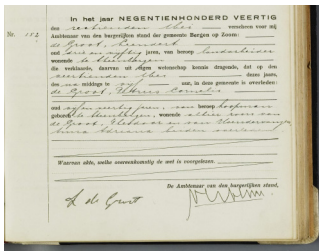 In het jaar NEGENTIENHONDERD VEERTIG
Nr. 112
den zeventienden Mei verscheen voor mij
Ambtenaar van den burgerlijken stand der gemeente Bergen op Zoom:
de Groot, Leendert
oud drie en vijftig jaren, van beroep landarbeider
wonende te Steenbergen
die verklaarde, daarvan uit eigen wetenschap kennis dragende, dat op den
veertienden Mei dezes jaars,
des na middags te vijf uur, in deze gemeente is overleden:
de Groot, Cornelis
oud vijf en veertig jaren, van beroep koopman
geboren te Steenbergen, wonende alhier zoon van
de Groot, en van
Anna Adriana beiden overleden
Waarvan akte, welke overeenkomstig de wet is voorgelezen.
De Ambtenaar van den burgerlijken stand,
L de Groot